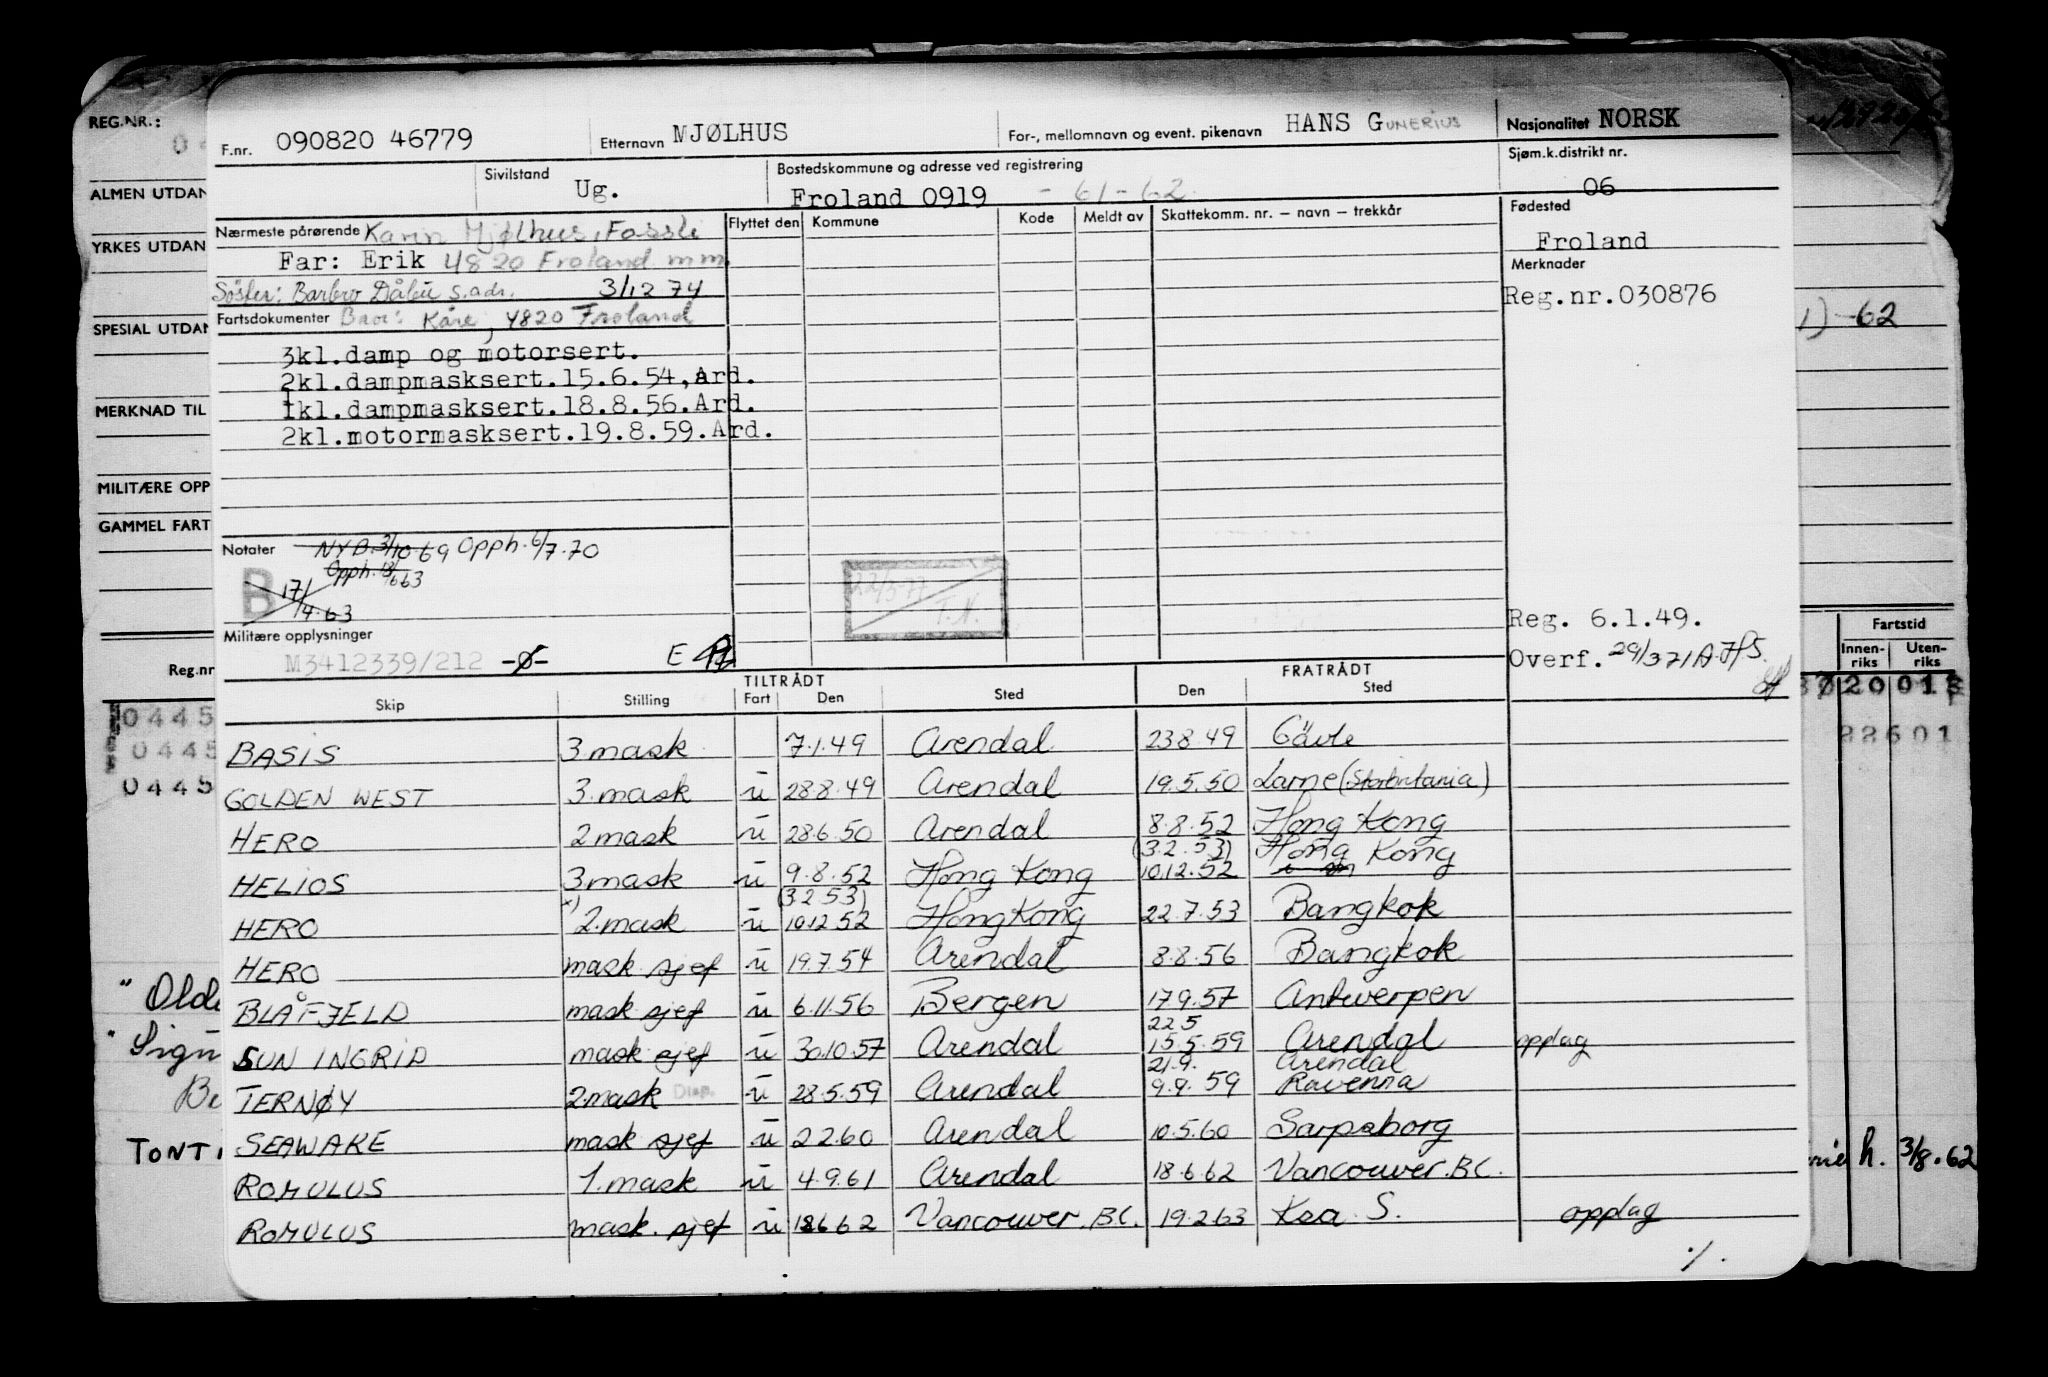 REG.NR.:
F.nr. 090820 46779 Etternavn MJØLHUS For-, mellomnavn og event. pikenavn HANS GUNERIUS Nasjonalitet NORSK
ALMEN UTDAN
Sivilstand Ug. Bostedskommune og adresse ved registrering Froland 0919 - 61-62 Sjøm.k.distrikt nr. 06
YRKES UTDAN
Nærmeste pårørende Karin Mjølhus, Fossli Flyttet den Kommune Kode Meldt av Skattekomm. nr. – navn – trekkår Fødested
Far: Erik 4820 Froland m m Froland
Søster: Barbro Dåbu s.adr. 3/12 74 Merknader
SPESIAL UTDAN
Fartsdokumenter Bror: Kåre, 4820 Froland Reg.nr.030876
1) -62
3kl.damp og motorsert.
2kl.dampmasksert.15.6.54,Ard.
MERKNAD TIL
1kl.dampmasksert.18.8.56.Ard.
2kl.motormasksert.19.8.59.Ard.
MILITÆRE OPP
GAMMEL FART
Notater NYB.3/10.69 Opph. 6/7.70
Opph. 18/663
B 17/4.63
22/3-77
T.N.
Militære opplysninger
M3412339/212 -Ø- E
Reg. 6.1.49.
Overf. 29/371A.HS.
Fartstid
Innen-riks Uten-riks
Reg.nr
TILTRÅDT FRATRÅDT
Skip Stilling Fart Den Sted Den Sted
0445
0445
0445
22601
BASIS 3.mask 7.1.49 Arendal 23849 Gävle
GOLDEN WEST 3.mask u 28.8.49 Arendal 19.5.50 Larne (Storbritania)
HERO 2 mask u 28.6.50 Arendal 8.8.52 Hong Kong
HELIOS 3 mask u 9.8.52 Hong Kong (3.2.53) 10.12.52 Hong Kong
HERO x) 2.mask u (3253) 10.12 52 Hong Kong 22.7.53 Bangkok
HERO mask sjef u 19.7.54 Arendal 8.8.56 Bangkok
BLÅFJELD mask sjef u 6.11.56 Bergen 17.9.57 Antwerpen
SUN INGRID mask sjef u 30.10.57 Arendal 22 5 15.5.59 Arendal opplag
TERNØY 2.mask Disp. u 28.5.59 Arendal 21.9. Arendal 9.9.59 Ravenna
SEAWAKE mask sjef u 2 2.60 Arendal 10.5.60 Sarpsborg
ROMULUS 1.mask u 4.9.61 Arendal 18.6.62 Vancouver.B.C.
ROMULUS mask. sjef u 18662 Vancouver. B.C. 19.2.63 Krs. S. opplag
"Olde
"Sign
Be
TONTI
h. 3/8.62
./.